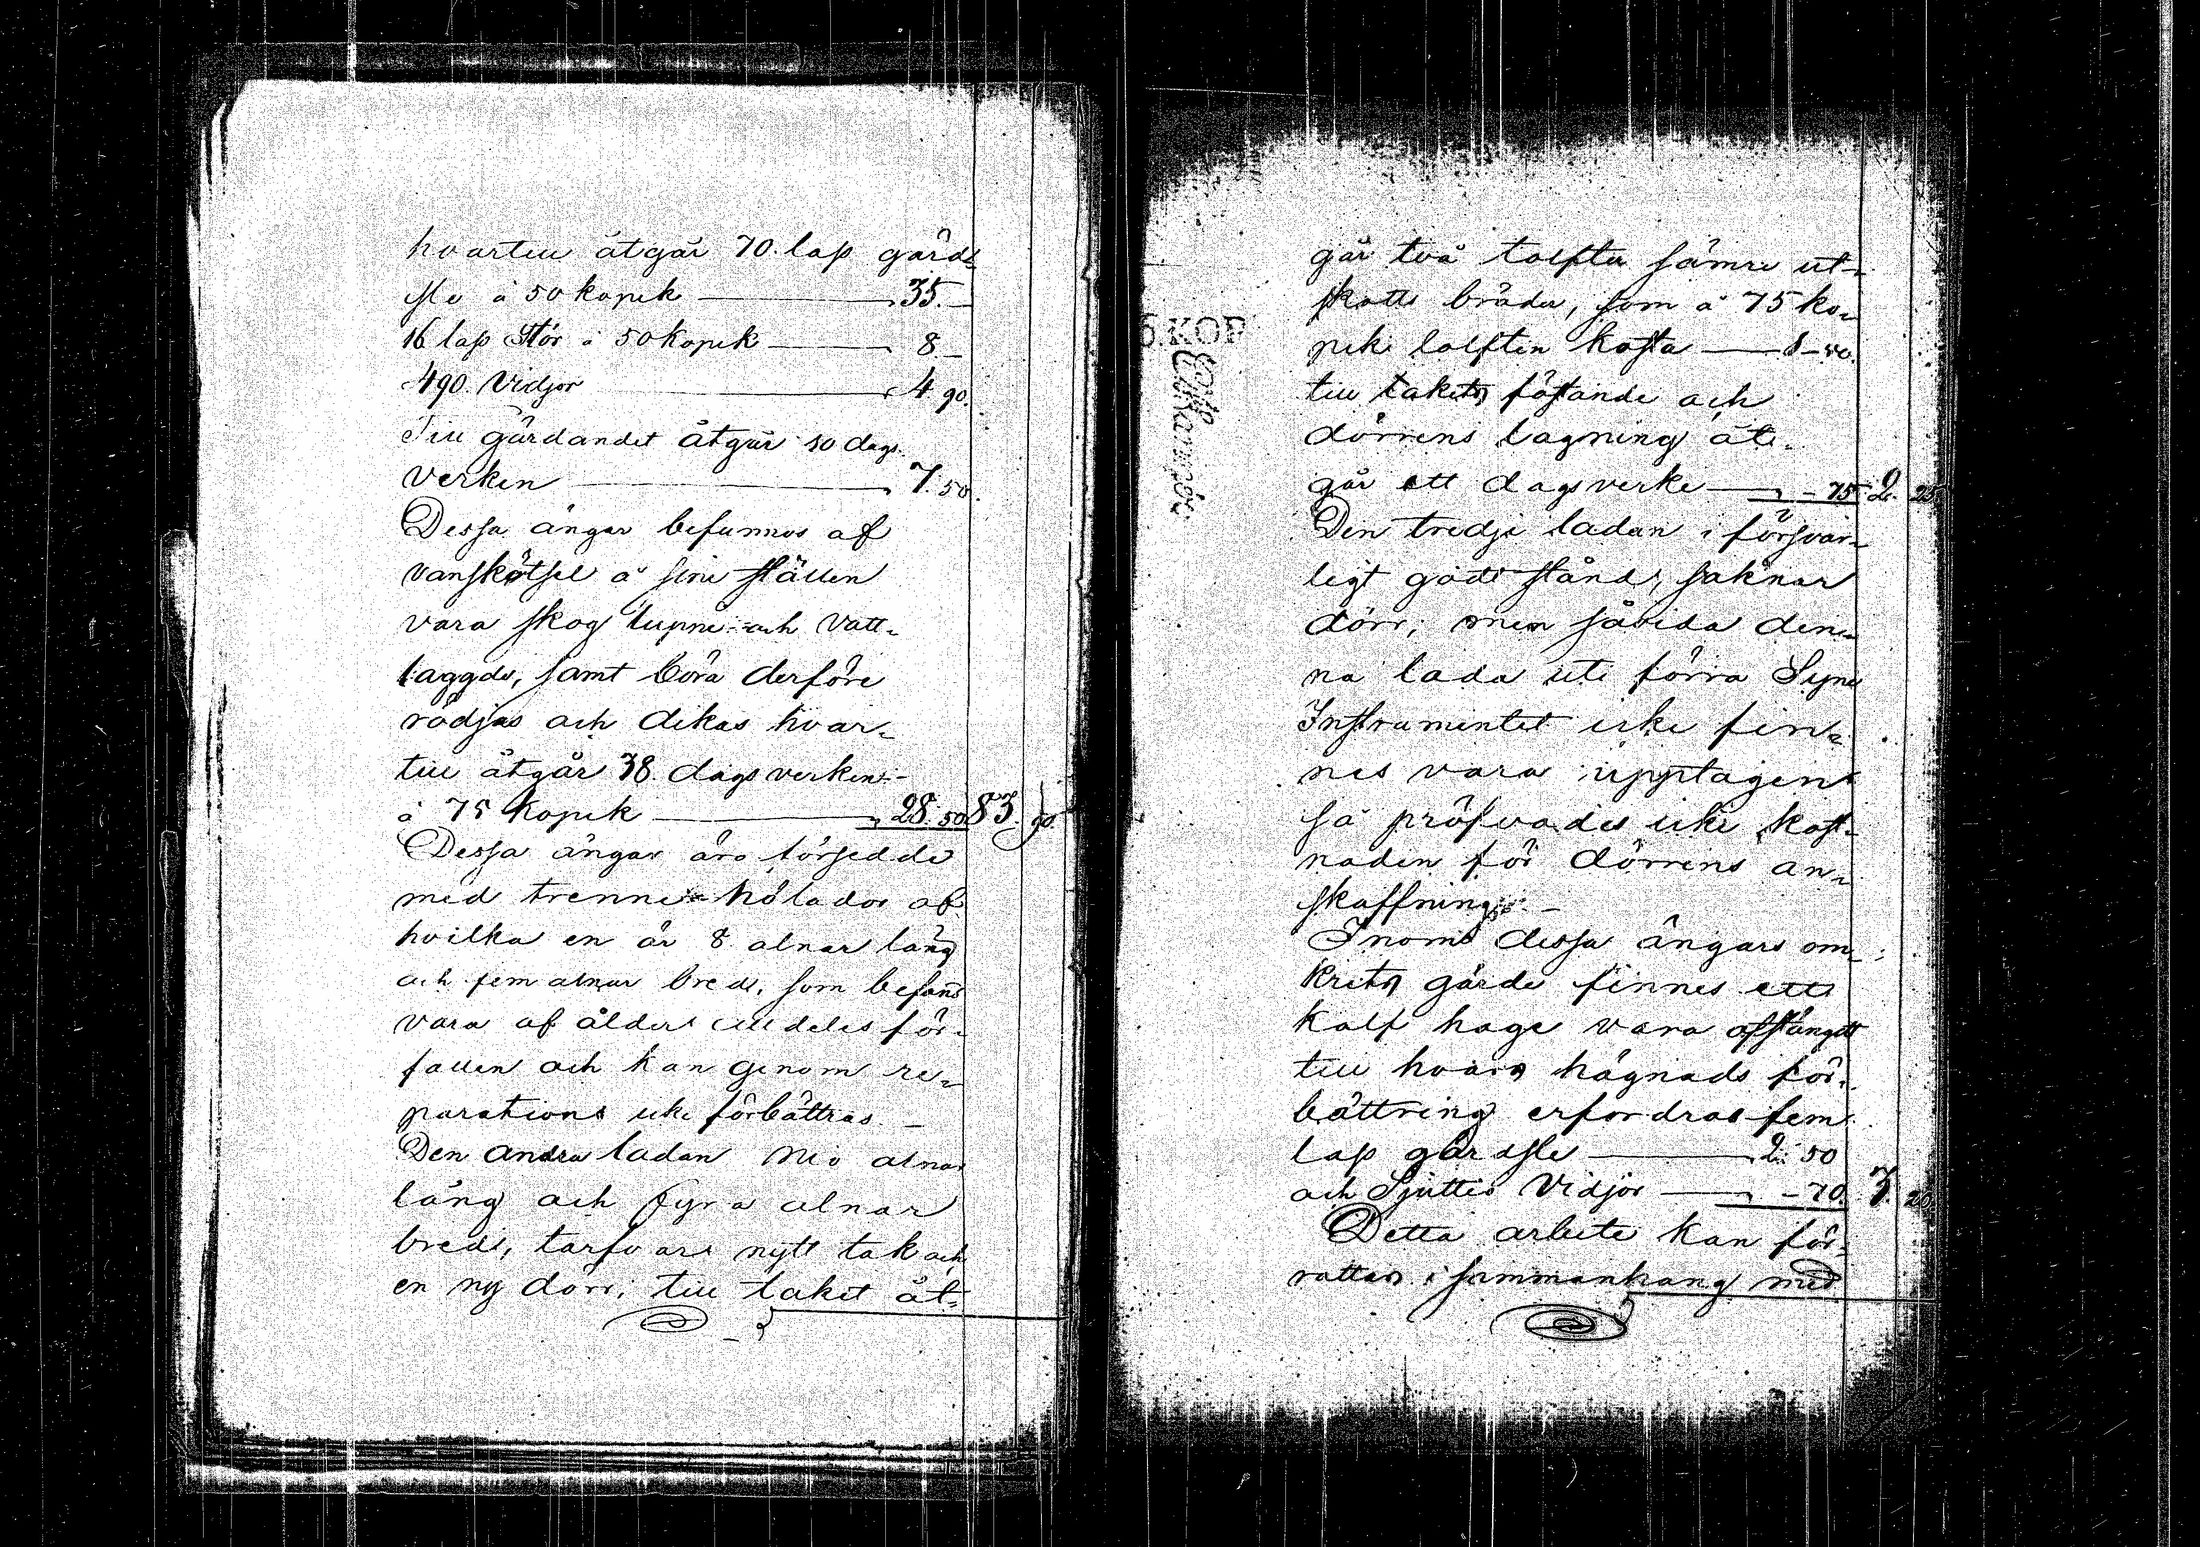 hvartill åtgår 70. lass gärds-
sle à 50 kopek — 35. —
16 lass Stör à 50 kopek — 8 —
490. Vidjor — 4 90.
Till gärdandet åtgår 10 dags-
verken — 7. 50.
Dessa ängar befunnos af
vanskötsel å sine ställen
vara skog lupne och vatt-
laggde, samt böra derföre
rödjas och dikas hvar-
till åtgår 38. dagsverken
à 75 kopek — 28. 50 83. 90.
Dessa ängar äro försedde
med trenne hölador af
hvilka en är 8 alnar lång
och fem alnar bred, som befans
vara af ålder alldeles för-
fallen och kan genom re-
parations icke förbättras. —
Den andra ladan nio alnar
lång och fyra alnar
bred, tarfvar nytt tak och
en ny dörr; till taket åt-
går två tolfter sämre ut-
skotts bräder, som à 75 ko-
pek tolften kosta — 1 - 50.
till takets fästande och
dörrens lagning åt-
går ett dagsverke — - 75 2. 25
Den tredje ladan i försvar-
ligt godt stånd, saknar
dörr; men såvida den-
na lada uti förra Syne
Instrumentet icke fin-
nes vara upptagen
så pröfvades icke kost-
naden för dörrens an-
skaffning. —
Inom dessa ängars om-
krets gärde finnes ett
kalf hage vara afstängdt
till hvars hägnads för-
bättring erfordras fem
lass gärdsle — 2. 50
och Sjuttio Vidjor — - 70. 3. 20.
Detta arbete kan för-
rättas i sammanhang med
5 KOP